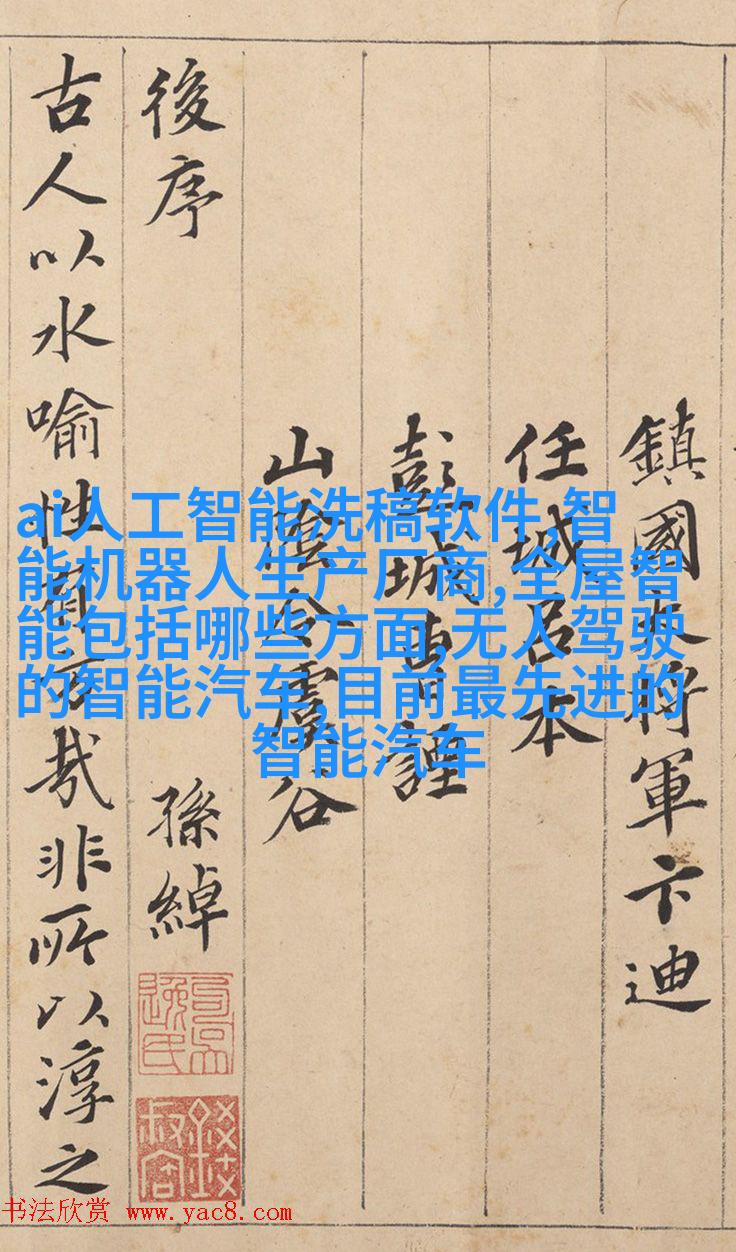 鎮國大將軍卞迪
任城呂本
彭城曹諲
山陰令虞谷
後序
孫綽
古人以水喻性有旨哉非所以淳之
ai人工智能洗稿软件,智
能机器人生产厂商,全屋智
能包括哪些方面,无人驾驶
的智能汽车,目前最先进的
智能汽车
书法欣赏 www.yac8.com